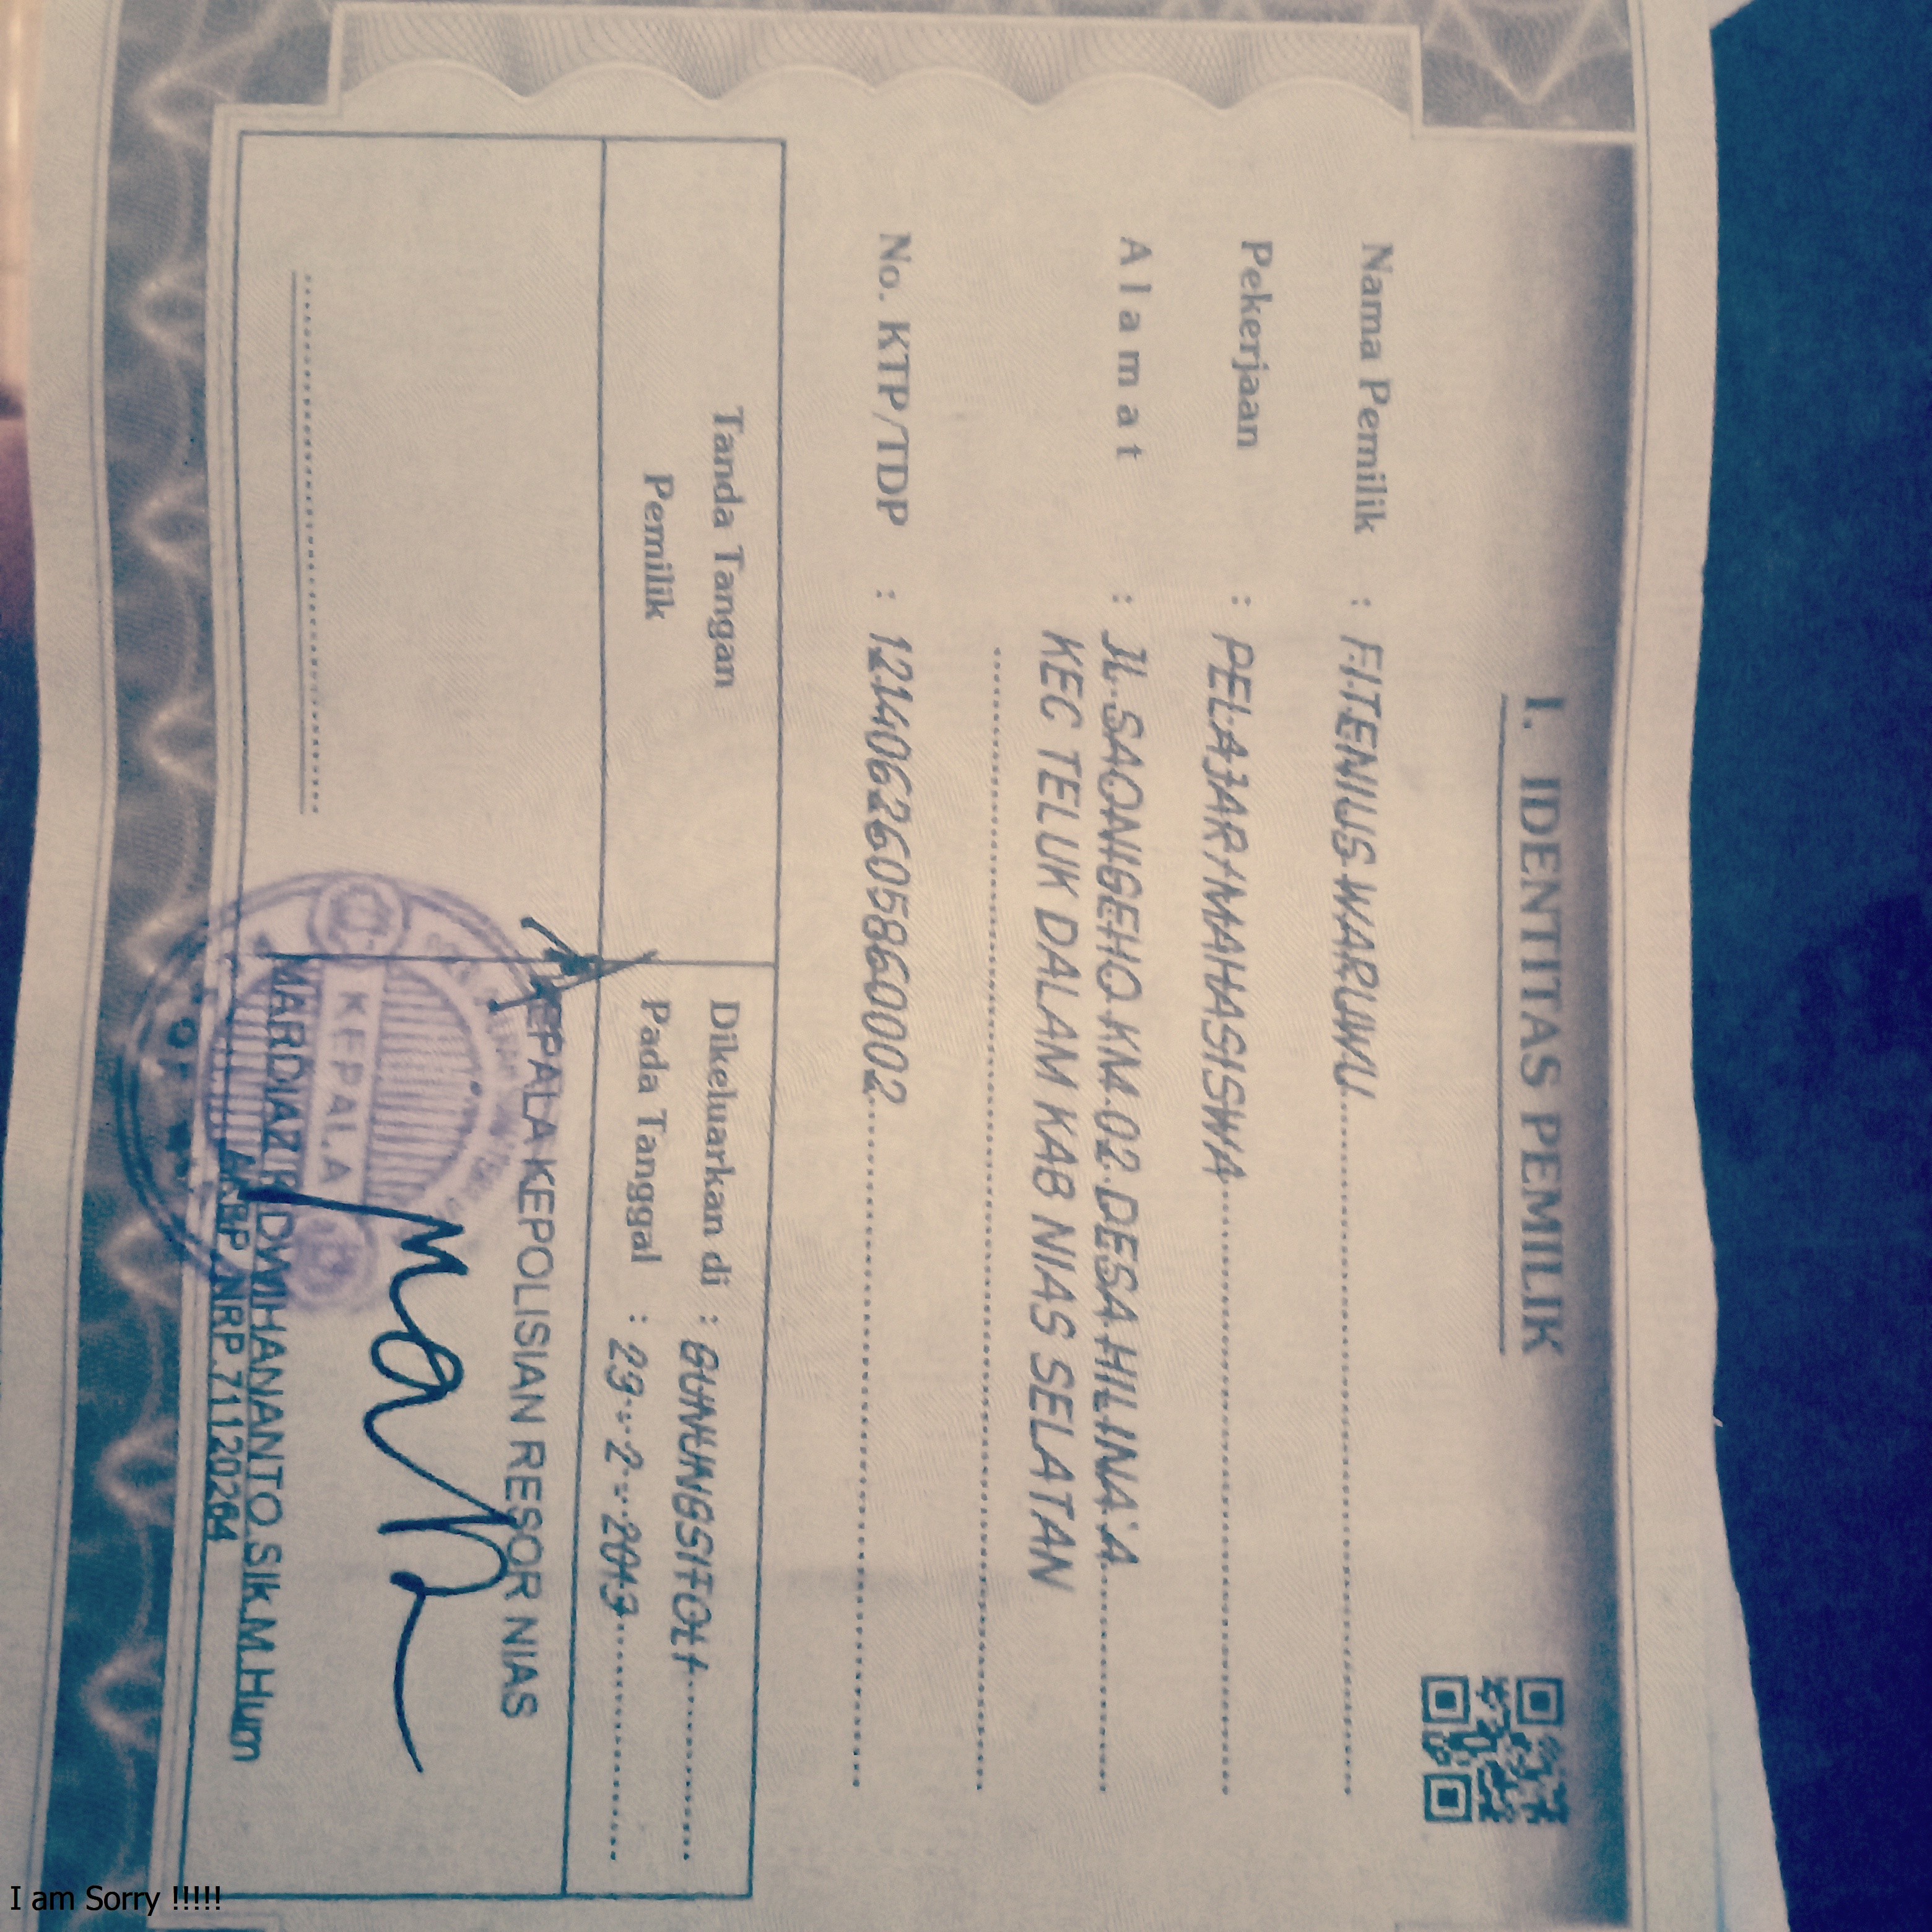 I. IDENTITAS PEMILIK
Nama Pemilik : FITENIUS WARUWU
Pekerjaan : PELAJAR/MAHASISWA
Alamat : JL SAONIGEHO KM 02 DESA HILINA'A
KEC TELUK DALAM KAB NIAS SELATAN
No. KTP/TDP : 1214062605860002
Tanda Tangan
Pemilik
Dikeluarkan di : GUNUNGSITOLI
Pada Tanggal : 23 - 2 - 2013
KEPALA KEPOLISIAN RESOR NIAS
KEPALA
MARDIAZ K DWIHANANTO.SIK.M.Hum
AKBP NRP.71120264
I am Sorry !!!!!